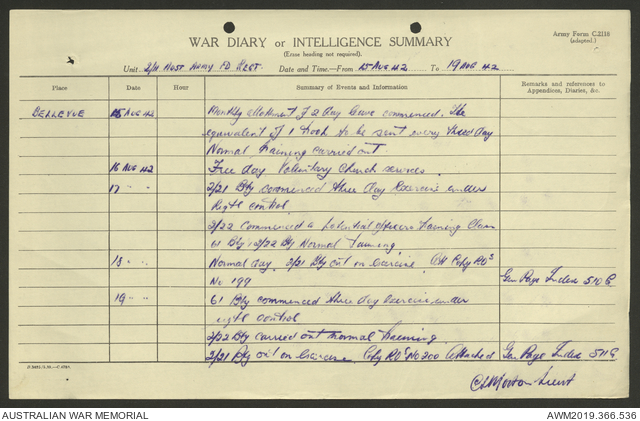 WAR DIARY or INTELLIGENCE SUMMARY
(Erase heading not required).
Army Form C.2118
(adapted.)
Unit 2/11 Aust Army FD Regt. Date and Time—From 15 AUG 42 To 19 AUG 42
Place Date Hour Summary of Events and Information Remarks and references to Appendices, Diaries, &c.
BELLEVUE 15 AUG 42 Monthly allotment of 2 day leave commenced. The
equivalent of 1 troop to be sent every third day
Normal Training carried out
16 AUG 42 Free day Voluntary Church services.
17 " " 2/21 Bty commenced three day Exercise under
Regtl control.
2/22 Commenced a potential officers Training Class
61 Bty & 2/22 Bty Normal Training
18 " " Normal day. 2/21 Bty out on Exercise. Att Copy RO's
No 199 Gen Page Index 510 G.
19 " " 61 Bty commenced three day exercise under
regtl control
2/22 Bty carried out normal Training
2/21 Bty out on Exercise. Copy RO's No 200 Attached Gen Page Index 511 G.
Lieut
AUSTRALIAN WAR MEMORIAL AWM2019.366.536